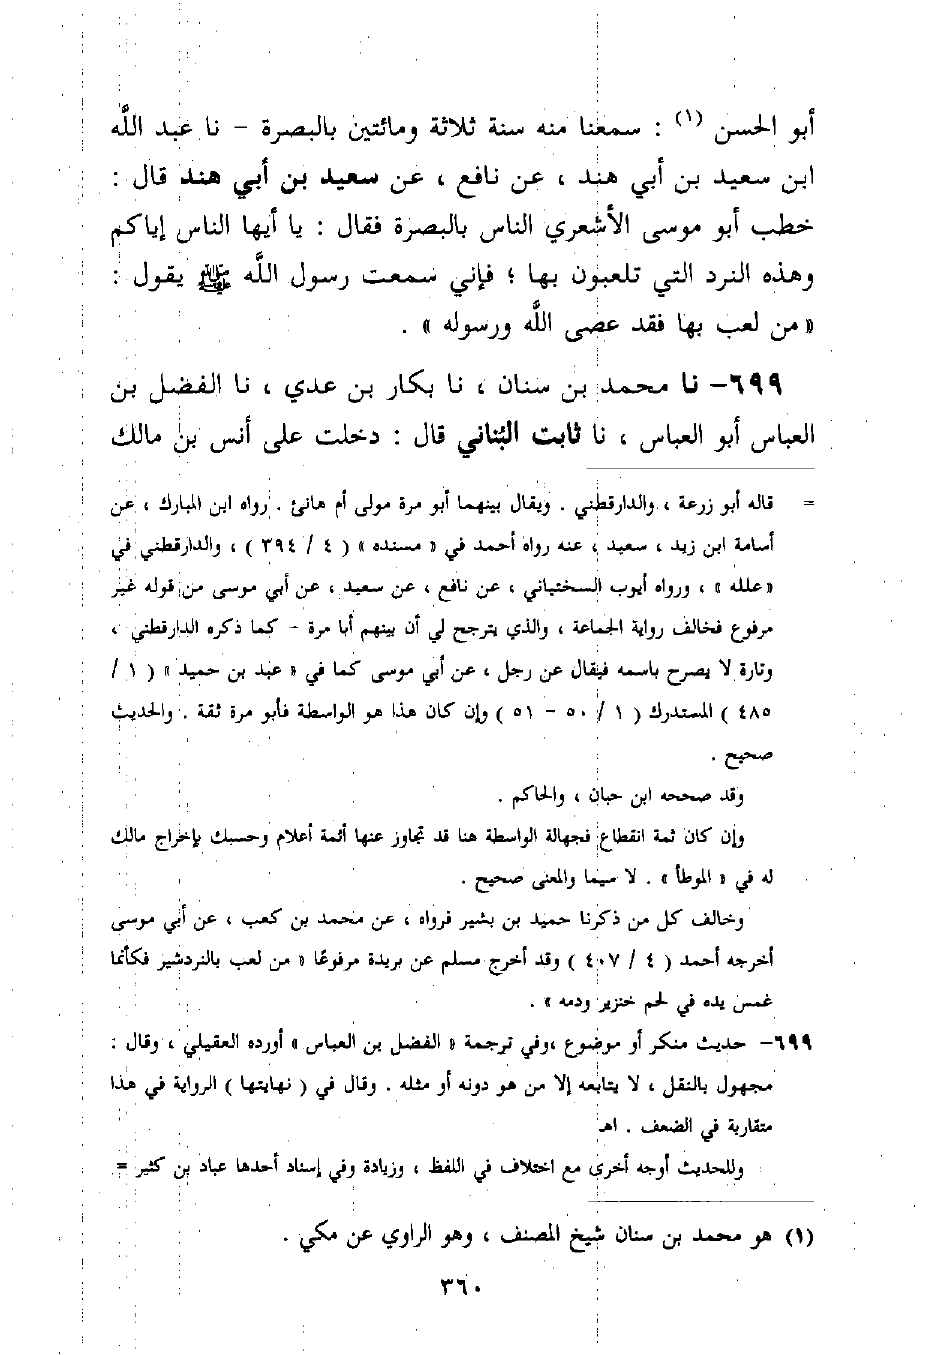 أبو الحسن (١) : سمعنا منه سنة ثلاثة ومائتين بالبصرة – نا عبد اللَّه
ابن سعيد بن أبي هند ، عن نافع ، عن سعيد بن أبي هند قال :
خطب أبو موسى الأشعري الناس بالبصرة فقال : يا أيها الناس إياكم
وهذه النرد التي تلعبون بها ؛ فإني سمعت رسول اللَّه ﷺ يقول :
« من لعب بها فقد عصى اللَّه ورسوله » .
٦٩٩– نا محمد بن سنان ، نا بكار بن عدي ، نا الفضل بن
العباس أبو العباس ، نا ثابت البُناني قال : دخلت على أنس بن مالك
= قاله أبو زرعة ، والدارقطني . ويقال بينهما أبو مرة مولى أم هانئ . رواه ابن المبارك ، عن
أسامة ابن زيد ، سعيد ، عنه رواه أحمد في « مسنده » ( ٤ / ٣٩٤ ) ، والدارقطني في
«علله » ، ورواه أيوب السختياني ، عن نافع ، عن سعيد ، عن أبي موسى من قوله غير
مرفوع فخالف رواية الجماعة ، والذي يترجح لي أن بينهم أبا مرة – كما ذكره الدارقطني ،
وتارة لا يصرح باسمه فيقال عن رجل ، عن أبي موسى كما في « عبد بن حميد » ( ١ /
٤٨٥ ) المستدرك ( ١ / ٥٠ – ٥١ ) وإن كان هذا هو الواسطة فأبو مرة ثقة . والحديث
صحيح .
وقد صححه ابن حبان ، والحاكم .
وإن كان ثمة انقطاع فجهالة الواسطة هنا قد تجاوز عنها أئمة أعلام وحسبك بإخراج مالك
له في « الموطأ » . لا سيما والمعنى صحيح .
وخالف كل من ذكرنا حميد بن بشير فرواه ، عن محمد بن كعب ، عن أبي موسى
أخرجه أحمد ( ٤ / ٤٠٧ ) وقد أخرج مسلم عن بريدة مرفوعًا « من لعب بالنردشير فكأنما
غمس يده في لحم خنزير ودمه » .
٦٩٩– حديث منكر أو موضوع ،وفي ترجمة « الفضل بن العباس » أورده العقيلي ، وقال :
مجهول بالنقل ، لا يتابعه إلا من هو دونه أو مثله . وقال في ( نهايتها ) الرواية في هذا
متقاربة في الضعف . اهـ
وللحديث أوجه أخرى مع اختلاف في اللفظ ، وزيادة وفي إسناد أحدها عباد بن كثير =
(١) هو محمد بن سنان شيخ المصنف ، وهو الراوي عن مكي .
٣٦٠